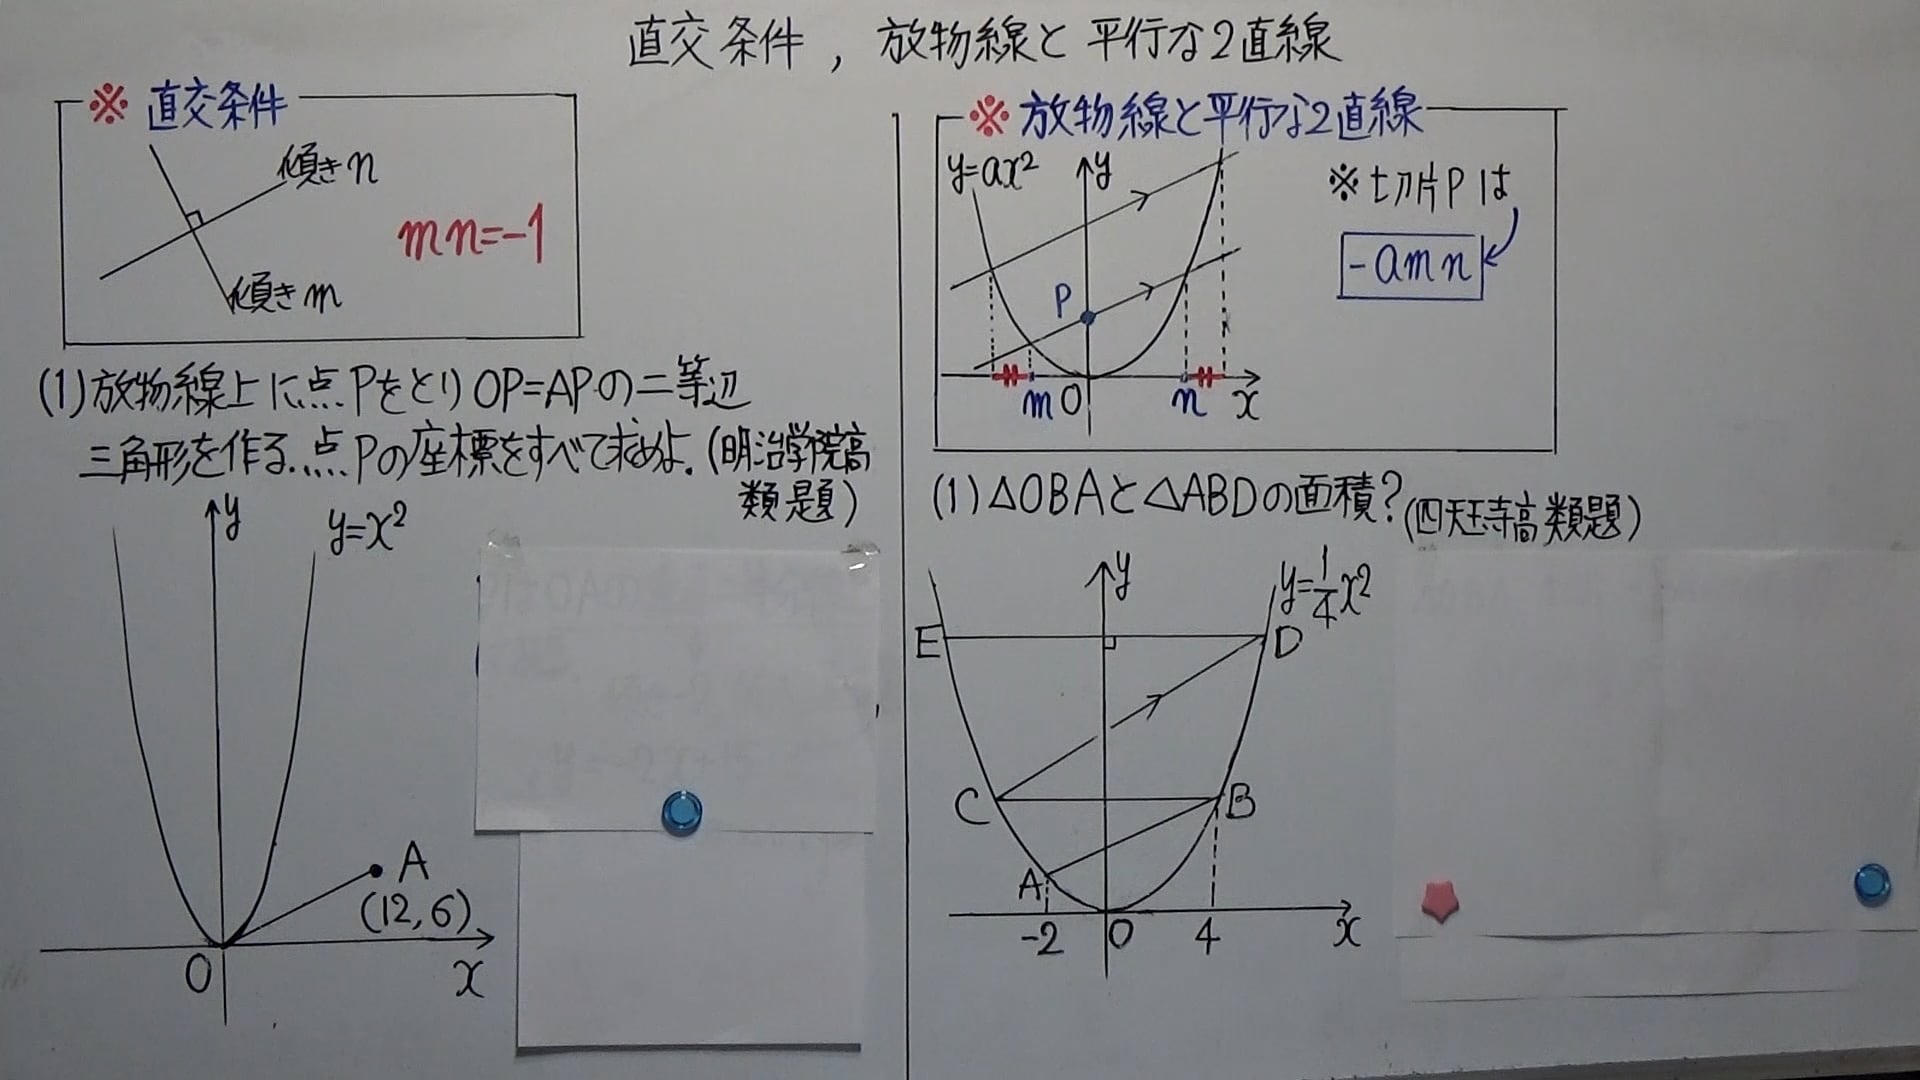 直交条件，放物線と平行な2直線
※ 直交条件
傾きn
mn=-1
傾きm
(1)放物線上に点PをとりOP=APの二等辺
三角形を作る.点Pの座標をすべて求めよ.(明治学院高
類題)
y
y=x²
A
(12,6)
O
x
※ 放物線と平行な2直線
y=ax²
y
※切片Pは
-amn
P
m
O
n
x
(1)△OBAと△ABDの面積?(四天王寺高類題)
y
y=1/4x²
E
D
C
B
A
-2
O
4
x
y=-2x+15